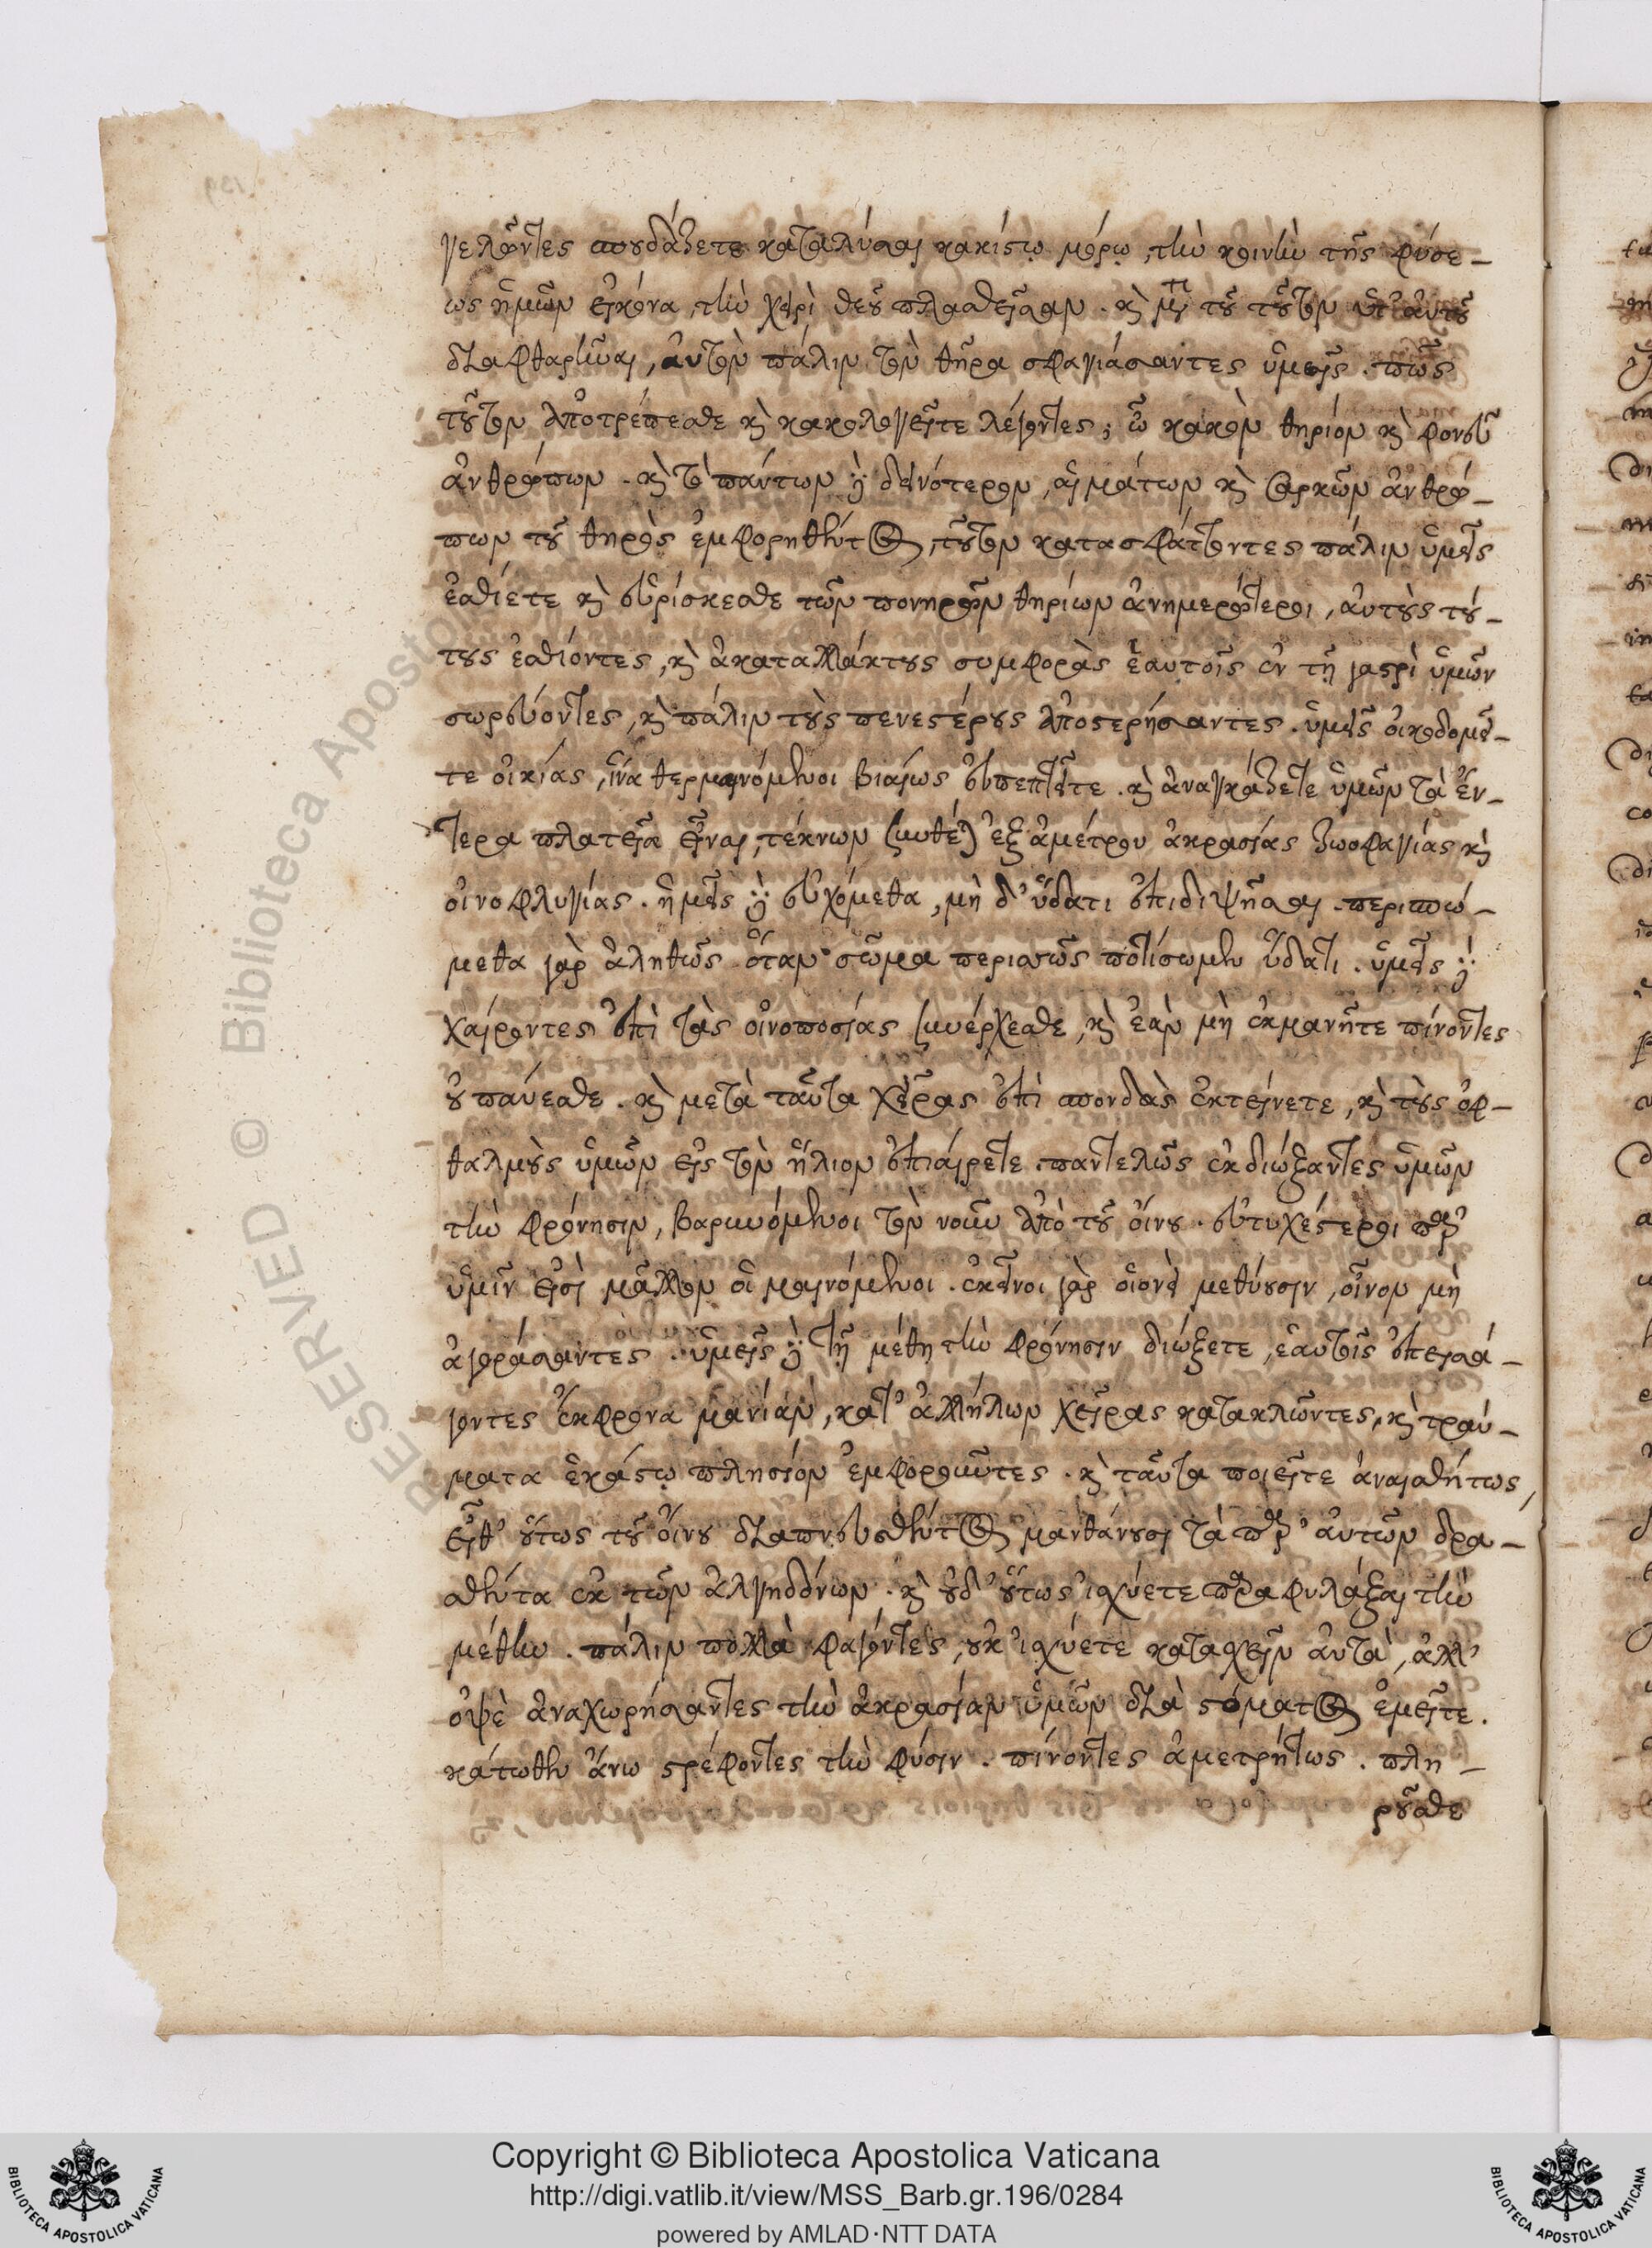 γελῶντες σπουδάζετε καταλύσαι κακίστῳ μόρῳ, τὴν κοινὴν τῆς φύσε-
ως ἡμῶν εἰκόνα, τὴν χειρὶ θεοῦ πλασθεῖσαν. καὶ μετὰ τὸ τοῦτον ὑπ' αὐτοῦ
διαφθαρῆναι, αὐτὸν πάλιν τὸν θῆρα σφαγιάσαντες ὑμεῖς. πῶς
τοῦτον ἀποτρέπεσθε καὶ κακολογεῖτε λέγοντες; ὦ κακὸν θηρίον καὶ φονεῦ
ἀνθρώπων. καὶ τὸ πάντων δὲ δεινότερον, αἱμάτων καὶ σαρκῶν ἀνθρώ-
πων τοῦ θηρὸς ἐμφορηθέντος, τοῦτον κατασφάττοντες πάλιν ὑμεῖς
ἐσθίετε καὶ εὑρίσκεσθε τῶν πονηρῶν θηρίων ἀνημερώτεροι, αὐτοὺς τού-
τους ἐσθίοντες, καὶ ἀκαταλλάκτους συμφορὰς ἑαυτοῖς ἐν τῇ γαστρὶ ὑμῶν
σωρεύοντες, καὶ πάλιν τοὺς πενεστέρους ἀποστερήσαντες. ὑμεῖς οἰκοδομεῖ-
τε οἰκίας, ἵνα θερμαινόμενοι βιαίως ἐκπεπτεῖτε. καὶ ἀναγκάζετε ὑμῶν τὰ ἔν-
τερα πλατεῖα εἶναι, τέκνων ἐξ ἀμέτρου ἀκρασίας ζωοφαγίας καὶ
οἰνοφλυγίας. ἡμεῖς δὲ εὐχόμεθα, μὴ δ' ὕδατι ἐπιδιψῆσαι.
μεθα γὰρ ἀληθῶς ὅταν σῶμα περισσῶς ποτίσωμεν ὕδατι. ὑμεῖς δὲ
χαίροντες ἐπὶ τὰς οἰνοποσίας συνέρχεσθε, καὶ ἐὰν μὴ ἐκμανῆτε πίνοντες
οὐ παύεσθε. καὶ μετὰ ταῦτα χεῖρας ἐπὶ σπονδὰς ἐκτείνετε, καὶ τοὺς ὀφ-
θαλμοὺς ὑμῶν εἰς τὸν ἥλιον ἐπαίρετε. παντελῶς ἐκδιώξαντες ὑμῶν
τὴν φρόνησιν, βαρυνόμενοι τὸν νοῦν ἀπὸ τοῦ οἴνου. εὐτυχέστεροι παρ'
ὑμῖν εἰσὶ μᾶλλον οἱ μαινόμενοι. ἐκεῖνοι γὰρ οἱονεὶ μεθύουσιν, οἶνον μὴ
ἀγοράσαντες. ὑμεῖς δὲ τῇ μέθῃ τὴν φρόνησιν διώξετε, ἑαυτοῖς ἐπεισά-
γοντες ἔκφρονα μανίαν, κατ' ἀλλήλων χεῖρας κατακλῶντες, καὶ τραύ-
ματα ἑκάστῳ πλησίον ἐμφοροῦντες. καὶ ταῦτα ποιεῖτε ἀναισθήτως,
εἶθ' οὕτως τοῦ οἴνου διαπνευσθέντος μανθάνουσι τὰ παρ' αὐτῶν δρα-
σθέντα ἐκ τῶν ἀλγηδόνων. καὶ οὐδ' οὕτως ἰσχύετε παραφυλάξαι τὴν
μέθην. πάλιν πολλὰ φαγόντες, οὐκ ἰσχύετε κατασχεῖν αὐτὰ, ἀλλ'
ὀψὲ ἀναχωρήσαντες τὴν ἀκρασίαν ὑμῶν διὰ στόματος ἐμεῖτε.
κάτωθεν ἄνω στρέφοντες τὴν φύσιν. πίνοντες ἀμετρήτως. πλη-
ροῦσθε
RESERVED © Biblioteca Apostol
Copyright © Biblioteca Apostolica Vaticana
http://digi.vatlib.it/view/MSS_Barb.gr.196/0284
powered by AMLAD·NTT DATA
BIBLIOTECA APOSTOLICA VATICANA
BIBLIOTECA APOSTOLICA VATICANA